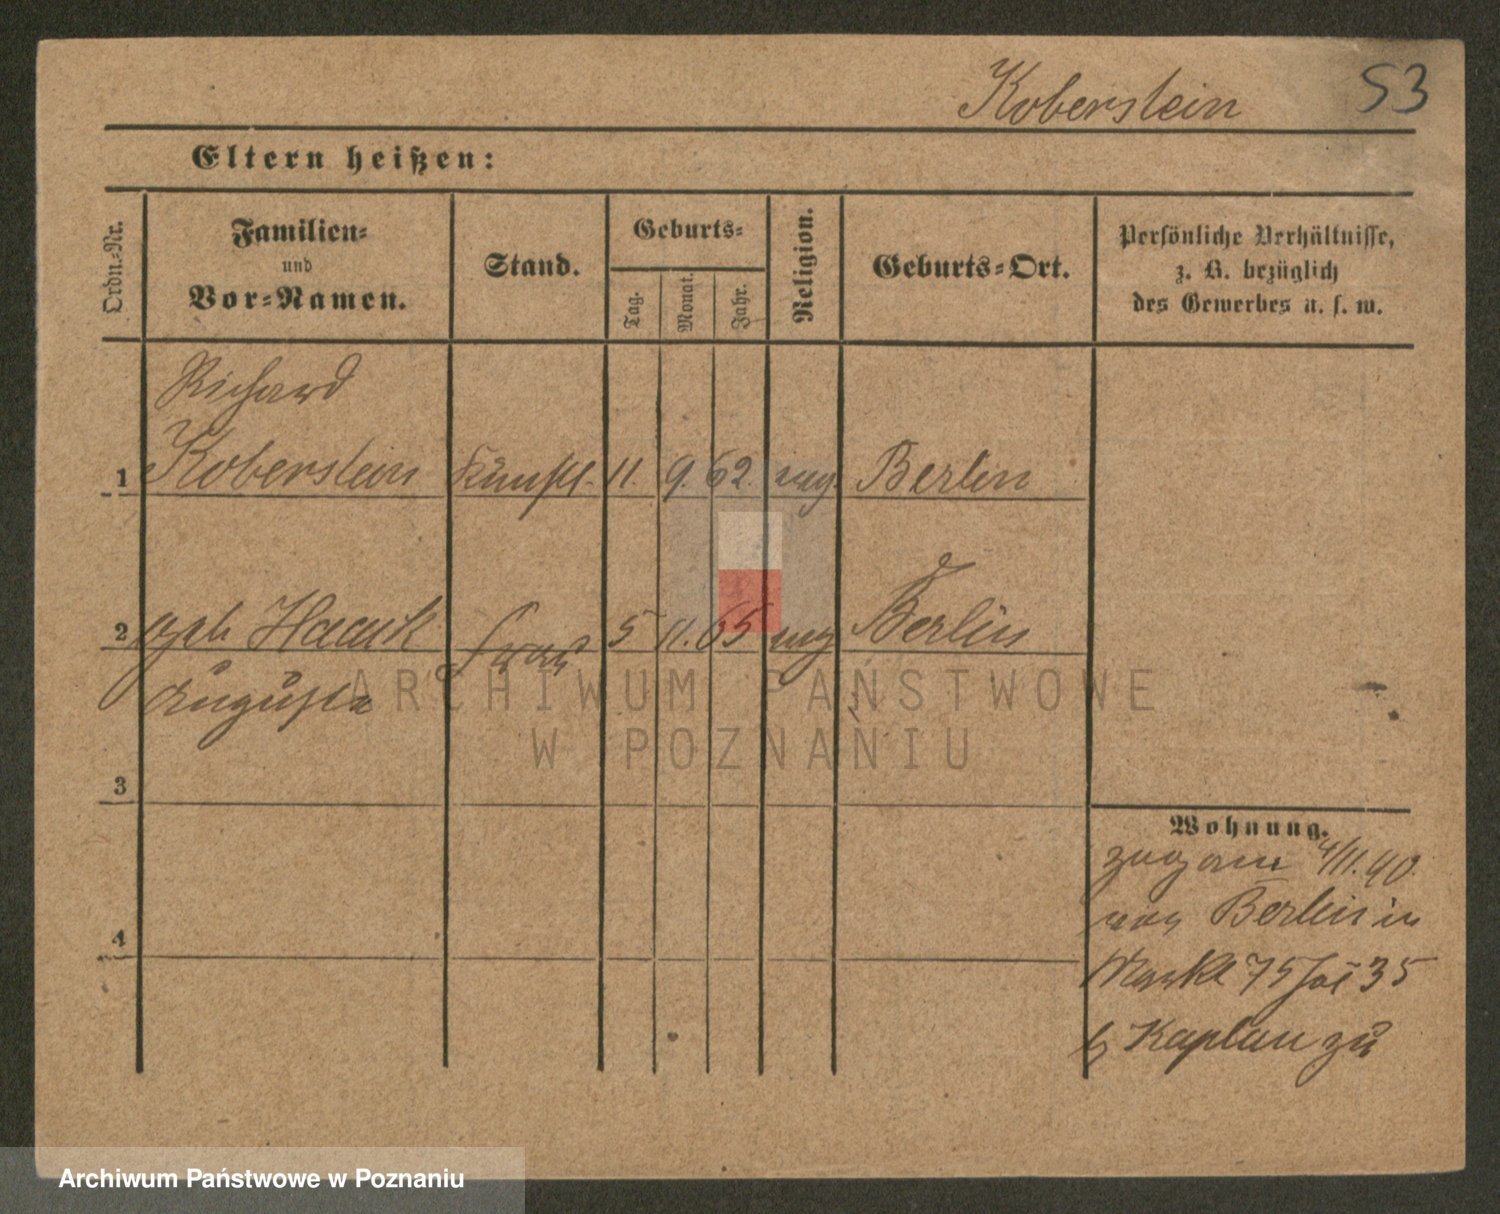 Koberstein 53
Eltern heißen:
Ordn.-Nr.
Familien-
und
Vor-Namen.
Stand.
Geburts-
Tag.
Monat.
Jahr.
Religion.
Geburts-Ort.
Persönliche Verhältnisse,
z. B. bezüglich
des Gewerbes u. s. w.
Richard
1 Koberstein Künstl. 11. 9. 62. evg. Berlin
2 geb Haack Frau 5 11. 65 evg Berlin
Auguste
3
4
Wohnung.
zugez am 4/11. 90.
von Berlin in
Markt 75
b Kaplan zu
ARCHIWUM PAŃSTWOWE
W POZNANIU
Archiwum Państwowe w Poznaniu